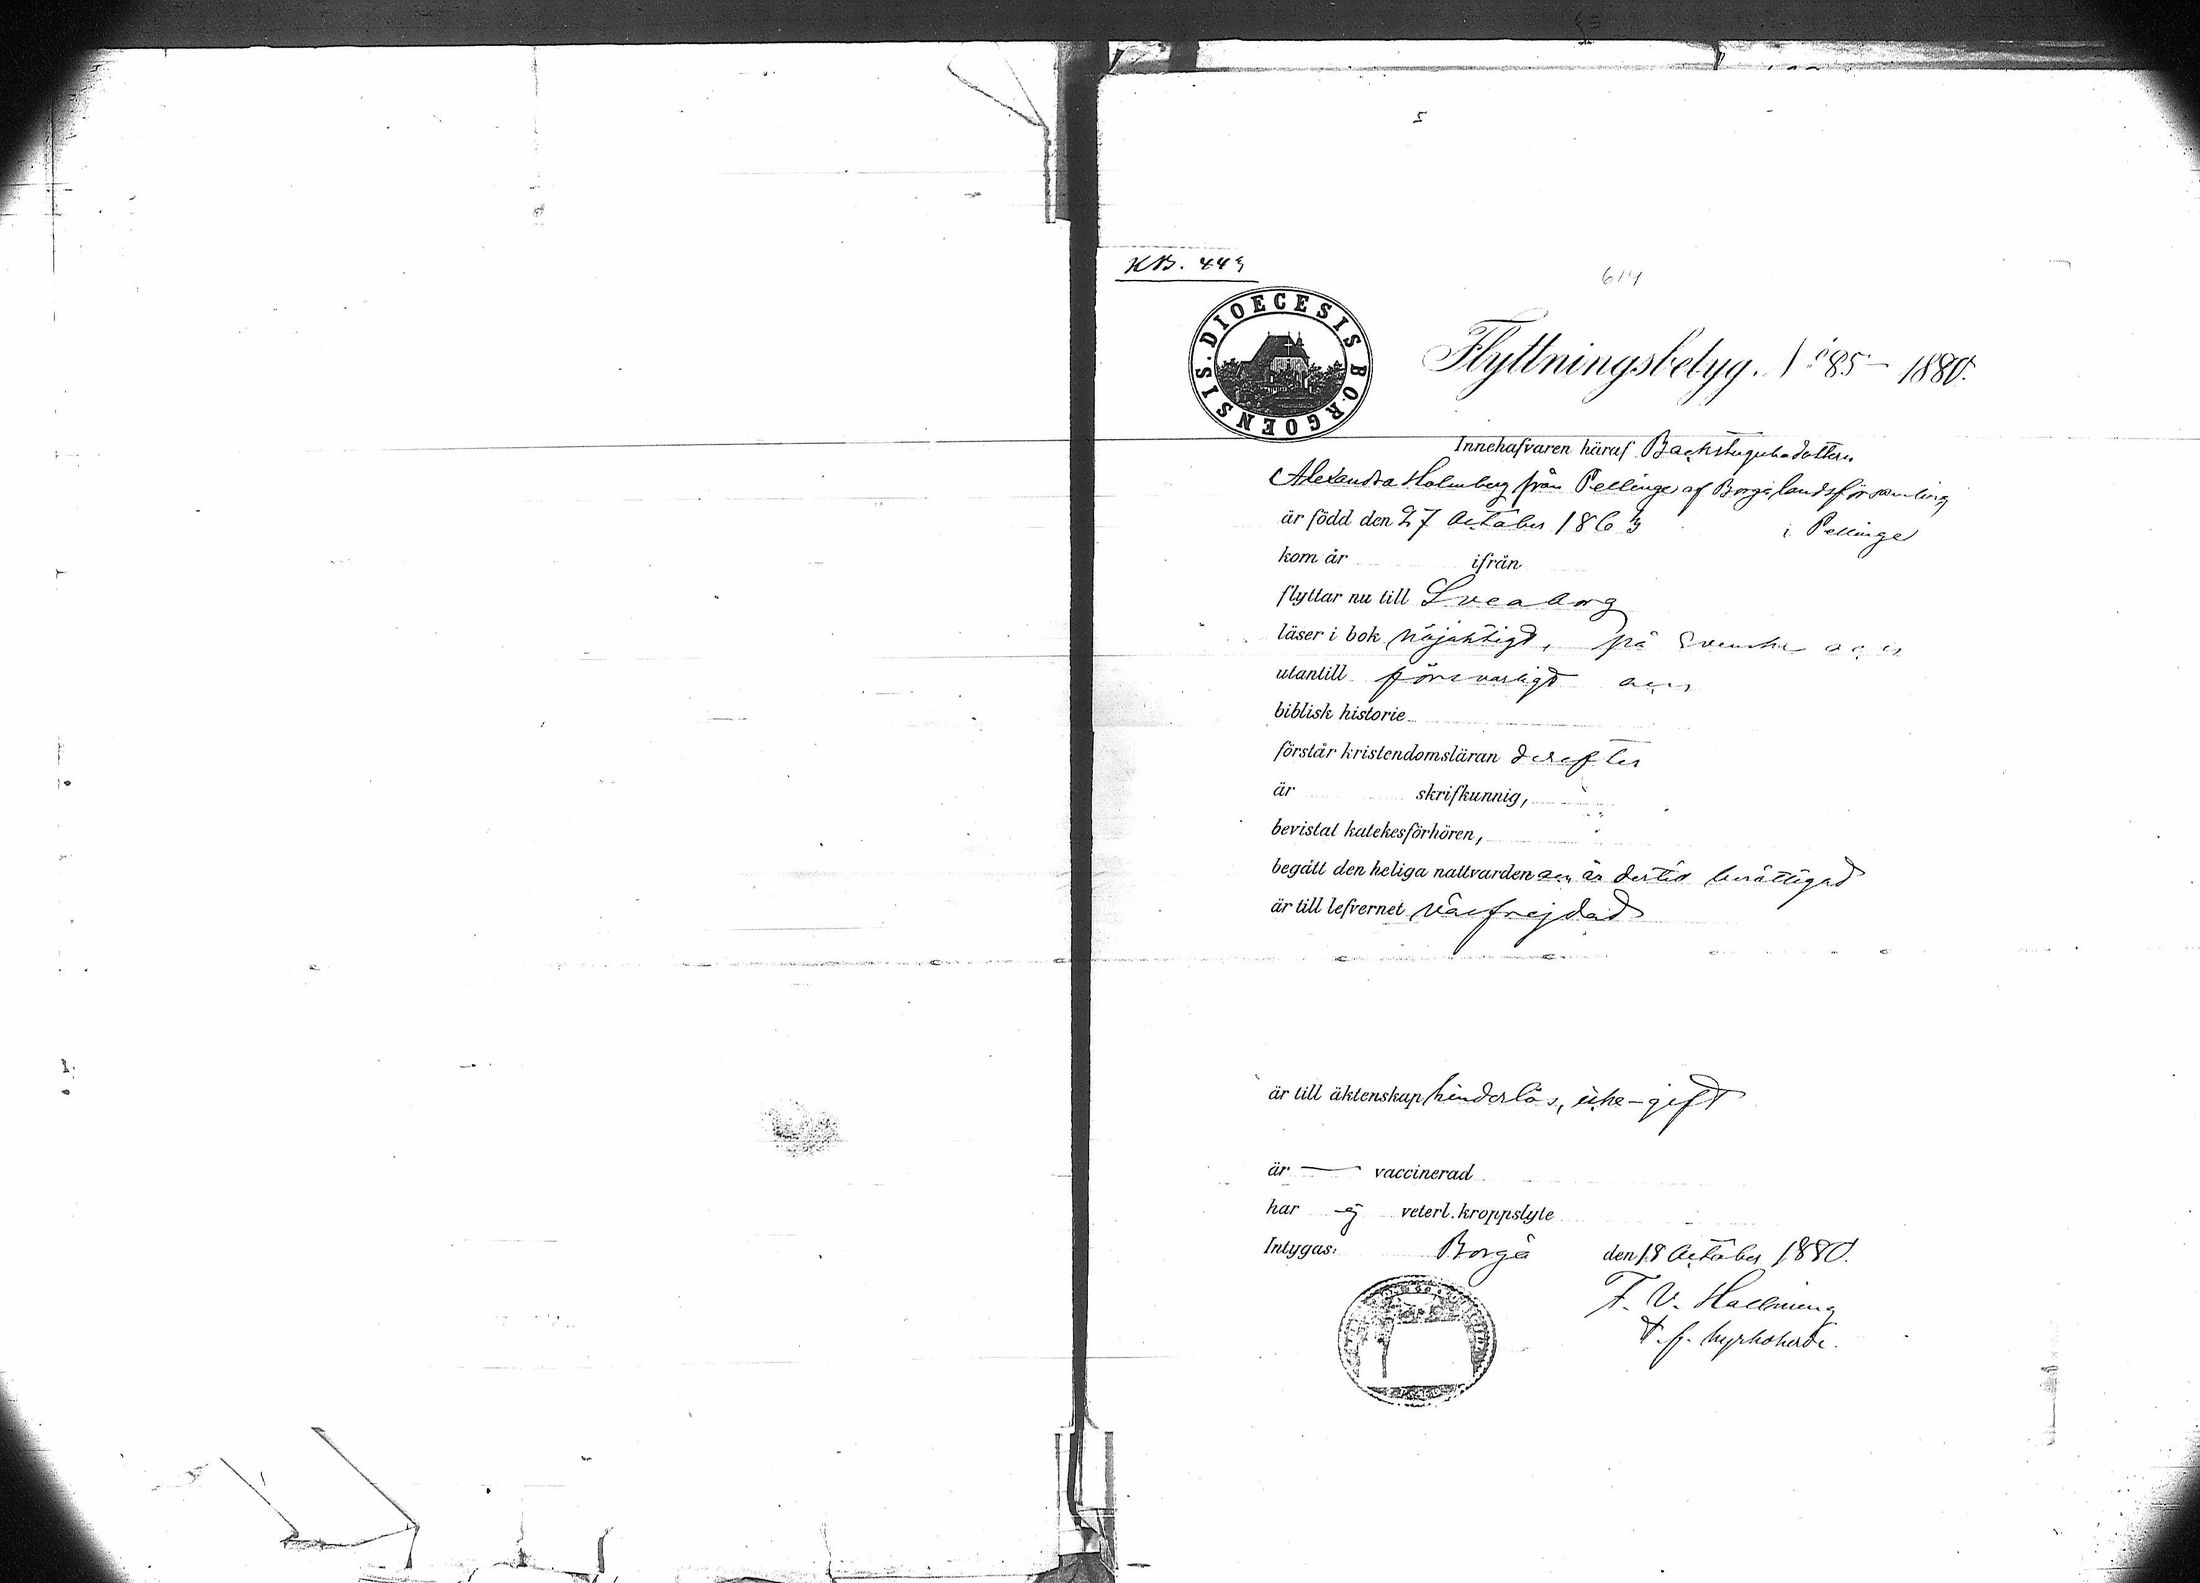 KB. 443
614
DIOECESIS BORGOENSIS.
Flyttningsbetyg. No 85 – 1880.
Innehafvaren häraf Backstugubodottern
Alexandra Holmberg från Pellinge af Borgå landsförsamling
är född den 27 October 1863 i Pellinge
kom år ifrån
flyttar nu till Sveaborg
läser i bok nöjaktigt, på Svenska och
utantill försvarligt och
biblisk historie
förstår kristendomsläran derefter
är skrifkunnig,
bevistat katekesförhören,
begått den heliga nattvarden och är dertill berättigad
är till lefvernet välfrejdad
är till äktenskap hinderlös, icke-gift
är — vaccinerad
har ej veterl. kroppslyte
Intygas: Borgå den 18 October 1880.
F. V.
t. f. kyrkoherde.